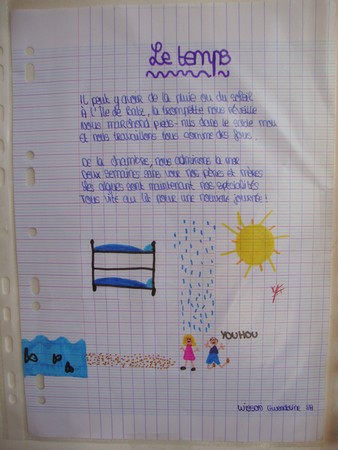 Le temps
Il peut y avoir de la pluie ou du soleil
À l'île de Batz, la trompette nous réveille
Nous marchons pieds-nus dans le sable mou
et nous travaillons tous comme des fous
De la chambre, nous admirons la vue
Deux semaines sans voir nos pères et mères
Les algues sont maintenant nos spécialités
Tous vite au lit pour une nouvelle journée !
YOUHOU